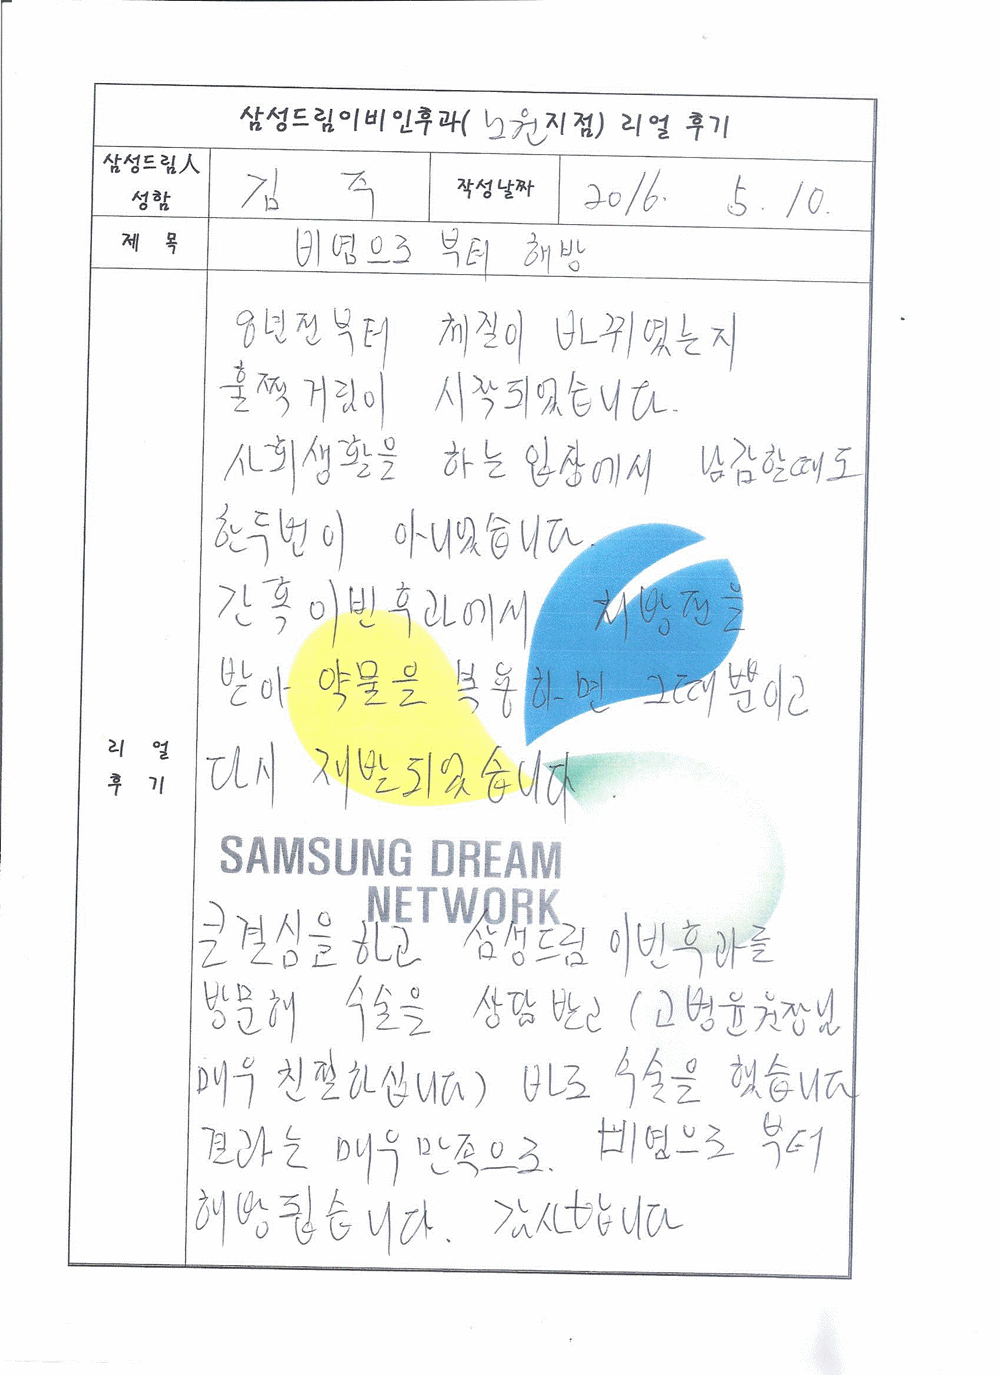 삼성드림이비인후과( 노원지점) 리얼 후기
삼성드림人 성함
김 직
작성날짜
2016. 5. 10.
제 목
비염으로 부터 해방
8년전부터 체질이 바뀌였는지
훌쩍거림이 시작되었습니다.
사회생활을 하는 입장에서 난감할때도
한두번이 아니였습니다.
간혹 이빈후과에서 처방전을
받아 약물을 복용하면 그때뿐이고
다시 재발되었습니다.
리 얼
후 기
SAMSUNG DREAM
NETWORK
큰결심을 하고 삼성드림 이빈후과를
방문해 수술을 상담받고 (고병윤원장님
매우 친절하십니다) 바로 수술을 했습니다
결과는 매우만족으로. 비염으로 부터
해방됩습니다. 감사합니다